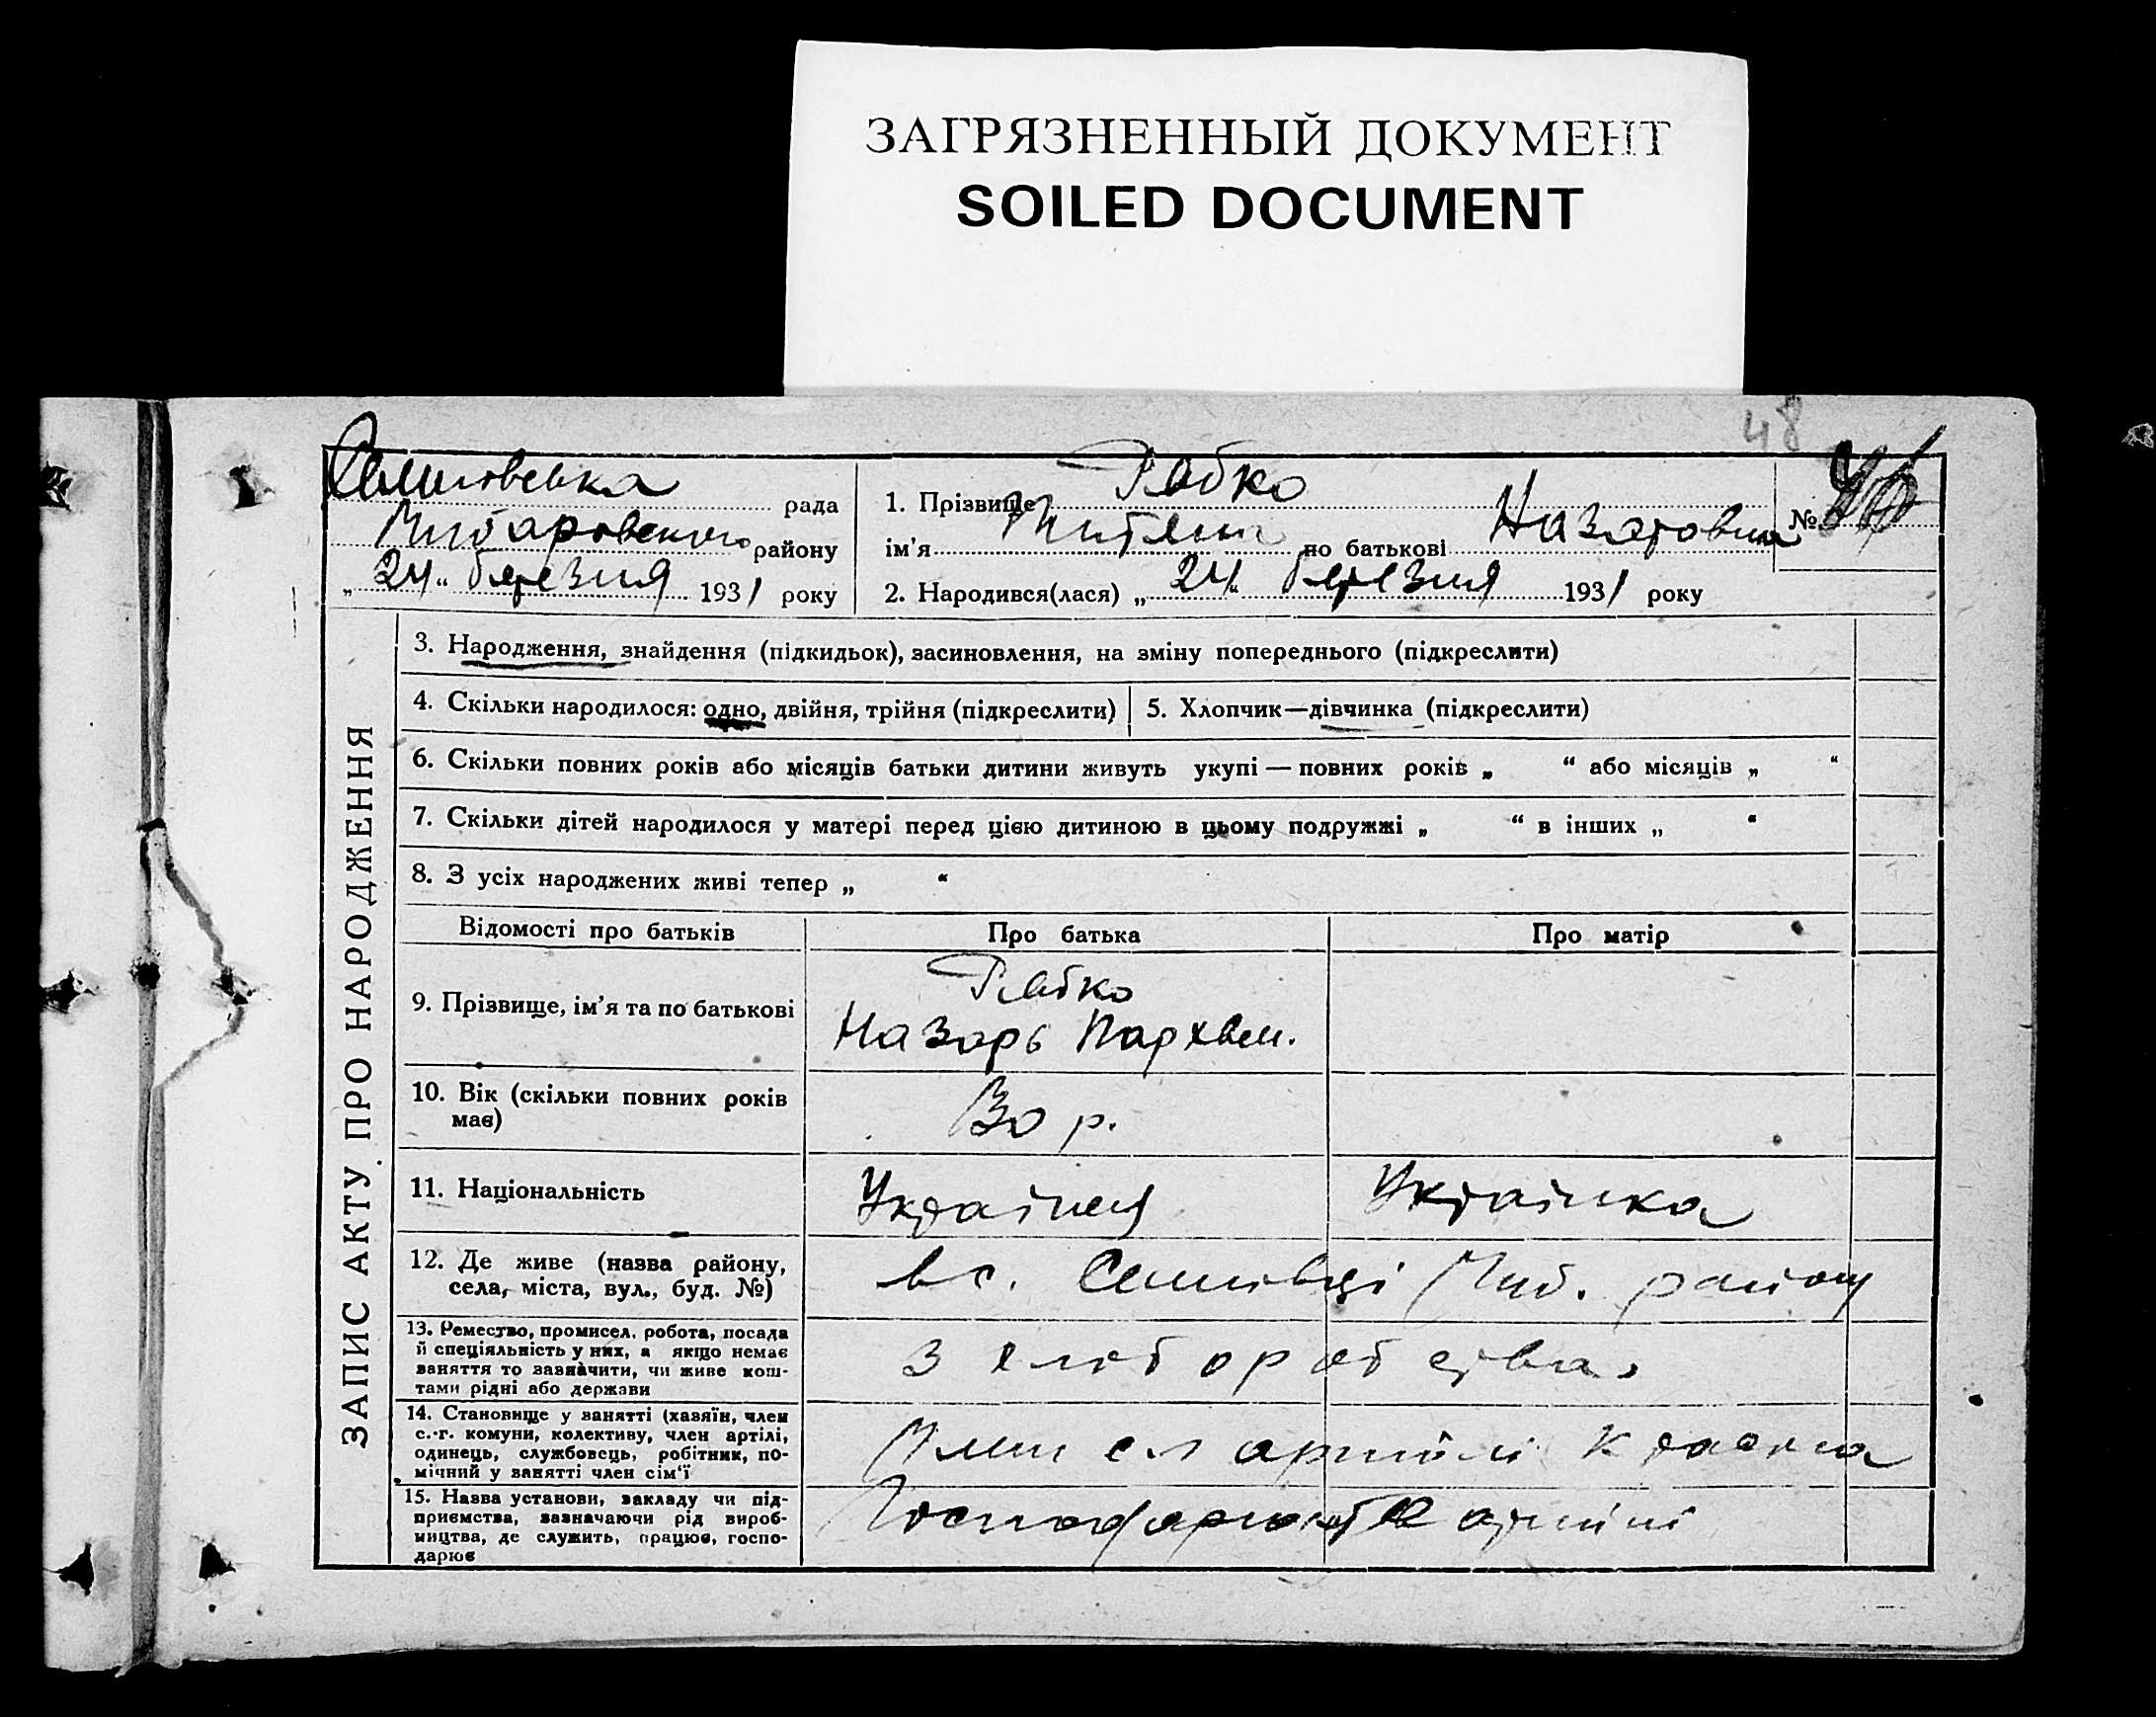 ЗАГРЯЗНЕННЫЙ ДОКУМЕНТ
SOILED DOCUMENT
48
рада
района
„24“ березня 1931 року
1. Прізвище Рабко
ім'я по батькові Назаровна №
2. Народився(лася) „24“ березня 1931 року
ЗАПИС АКТУ ПРО НАРОДЖЕННЯ
3. Народження, знайдення (підкидьок), засиновлення, на зміну попереднього (підкреслити)
4. Скільки народилося: одно, двійня, трійня (підкреслити)
5. Хлопчик—дівчинка (підкреслити)
6. Скільки повних років або місяців батьки дитини живуть укупі — повних років „ “ або місяців „ “
7. Скільки дітей народилося у матері перед цією дитиною в цьому подружжі „ “ в інших „ “
8. З усіх народжених живі тепер „ “
Відомості про батьків Про батька Про матір
9. Прізвище, ім'я та по батькові
Рабко
Назарь Пархвем.
10. Вік (скільки повних років
має)
30 р.
11. Національність
Українец Українка
12. Де живе (назва району,
села, міста, вул., буд. №)
в с. Семивці Чиб. району
13. Ремество, промисел, робота, посада
й спеціяльність у них, а якщо немає
заняття то зазначити, чи живе кош-
тами рідні або держави
з хліборобства
14. Становище у занятті (хазяїн, член
с.-г. комуни, колективу, член артілі,
одинець, службовець, робітник, по-
мічний у занятті член сім'ї
Член с г артілі
15. Назва установи, закладу чи під-
приємства, зазначаючи рід вироб-
ництва, де служить, працює, госпо-
дарює
артілі